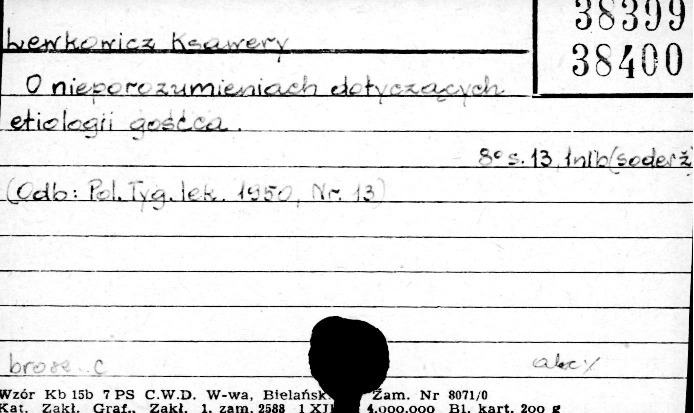 38399
Lewkowicz Ksawery
38400
O nieporozumieniach dotyczących
etiologii gośćca.
8° s. 13, 1nlb (soderž
(Odb: Pol. Tyg. lek. 1950, Nr. 13)
brosz. c
Wzór Kb 15b 7 PS C.W.D. W-wa, Bielańsk Zam. Nr 8071/0
Kat. Zakł. Graf., Zakł. 1. zam. 2588 1 XI 4.000.000 Bl. kart. 200 g